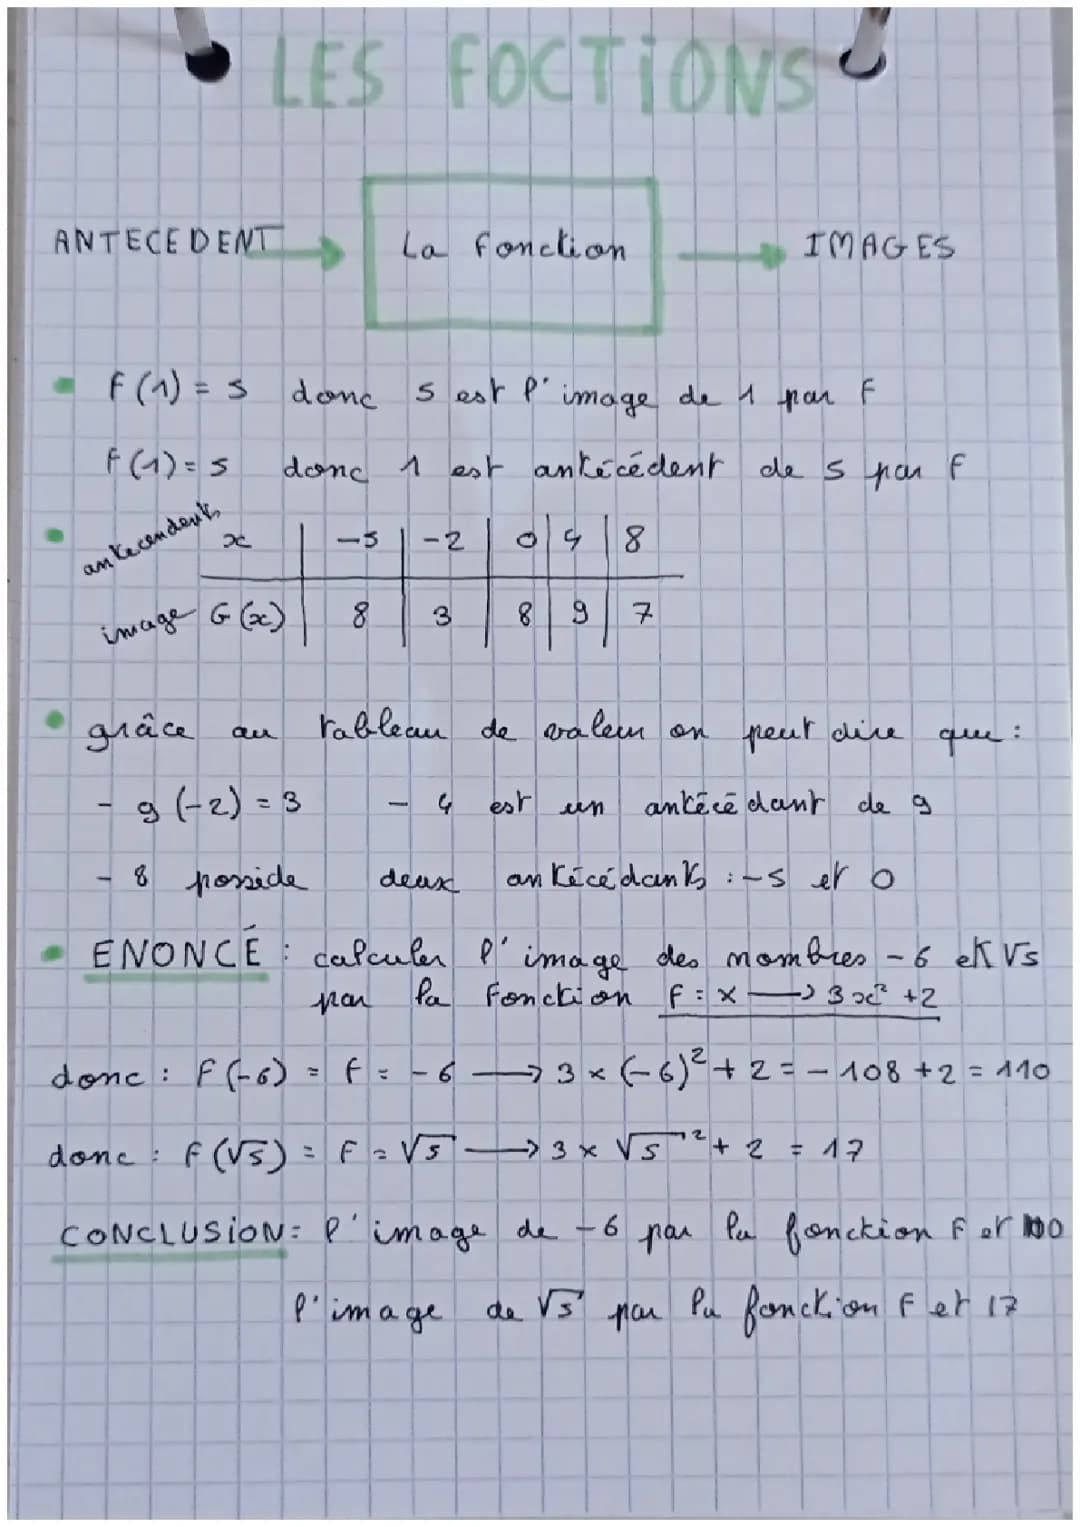 LES FOCTiONS
ANTECEDENT → La fonction → IMAGES
• f(1) = 5 donc 5 est l'image de 1 par f
f(1) = 5 donc 1 est antécédent de 5 par f
• antecendents x | -5 | -2 | 0 | 4 | 8
image G(x) | 8 | 3 | 8 | 9 | 7
• grâce au tableau de valeur on peut dire que :
- g(-2) = 3 - 4 est un antécédant de 9
- 8 posside deux antécédants : -5 et 0
• ENONCÉ : calculer l'image des nombres -6 et √5
par la fonction f : x → 3x² + 2
donc : f(-6) = f = -6 → 3 × (-6)² + 2 = - 108 + 2 = 110
donc : f(√5) = f = √5 → 3 × √5² + 2 = 17
CONCLUSiON = l'image de -6 par la fonction f et
l'image de √5 par la fonction f et 17